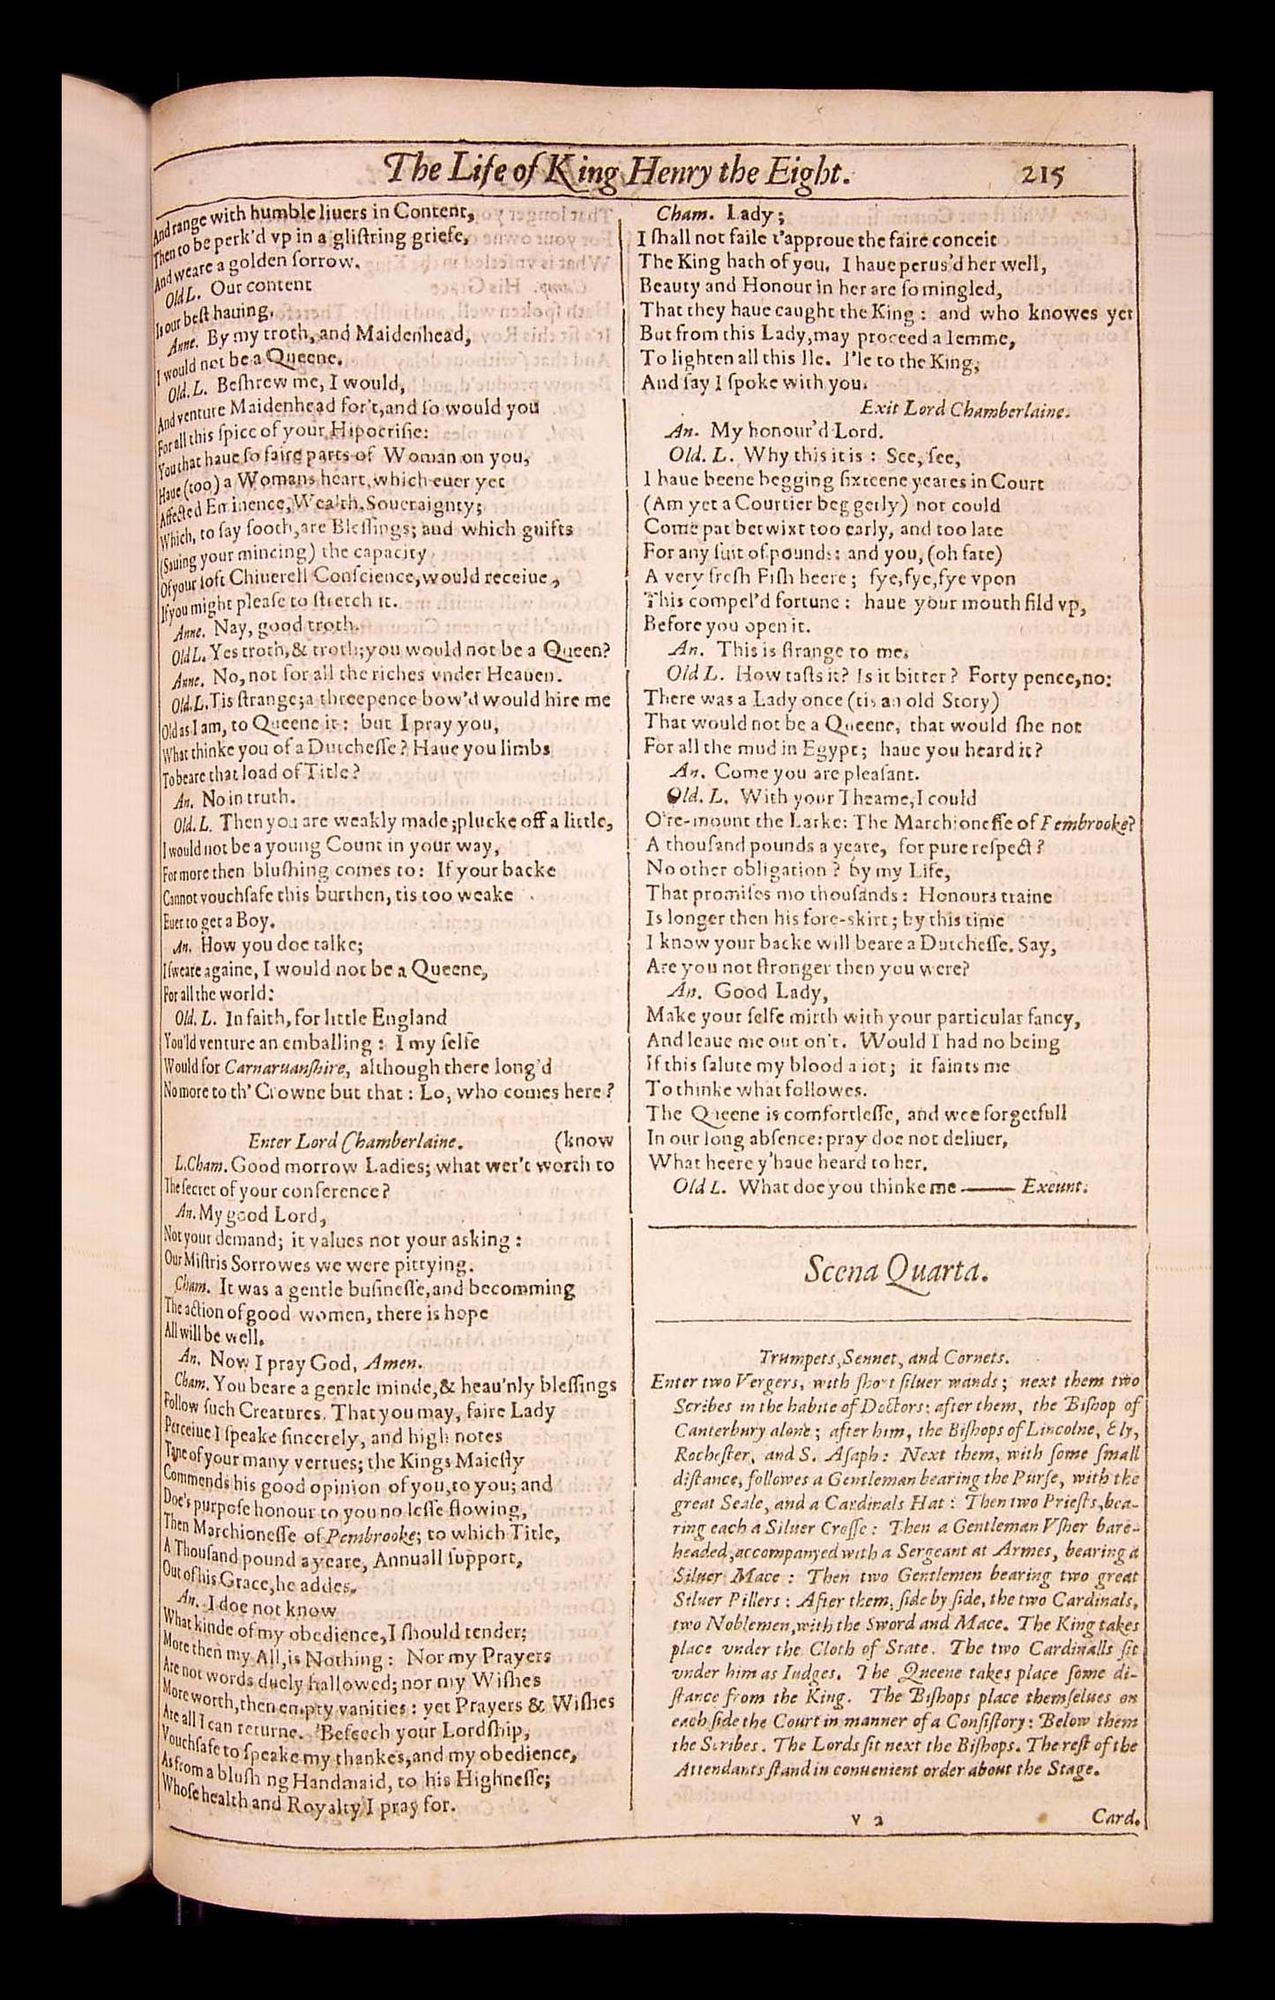 The Life of King Henry the Eight. 215
And range with humble liuers in Content,
Then to be perk'd vp in a gliſtring griefe,
And weare a golden ſorrow.
Old L. Our content
Is our beſt hauing.
Anne. By my troth, and Maidenhead,
I would not be a Queene.
Old. L. Beſhrew me, I would,
And venture Maidenhead for't, and ſo would you
For all this ſpice of your Hipocriſie:
You that haue ſo faire parts of Woman on you,
Haue (too) a Womans heart, which euer yet
Affected Eminence, Wealth, Soueraignty;
Which, to ſay ſooth, are Bleſſings; and which guifts
(Sauing your mincing) the capacity
Of your ſoft Chiuerell Conſcience, would receiue,
If you might pleaſe to ſtretch it.
Anne. Nay, good troth.
Old L. Yes troth, & troth; you would not be a Queen?
Anne. No, not for all the riches vnder Heauen.
Old. L. Tis ſtrange; a threepence bow'd would hire me
Old as I am, to Queene it: but I pray you,
What thinke you of a Dutcheſſe? Haue you limbs
To beare that load of Title?
An. No in truth.
Old. L. Then you are weakly made; plucke off a little,
I would not be a young Count in your way,
For more then bluſhing comes to: If your backe
Cannot vouchſafe this burthen, tis too weake
Euer to get a Boy.
An. How you doe talke;
I ſweare againe, I would not be a Queene,
For all the world:
Old. L. In faith, for little England
You'ld venture an emballing: I my ſelfe
Would for Carnaruanſhire, although there long'd
No more to th' Crowne but that: Lo, who comes here?
Enter Lord Chamberlaine. (know
L. Cham. Good morrow Ladies; what wer't worth to
The ſecret of your conference?
An. My good Lord,
Not your demand; it values not your asking:
Our Miſtris Sorrowes we were pittying.
Cham. It was a gentle buſineſſe, and becomming
The action of good women, there is hope
All will be well.
An. Now I pray God, Amen.
Cham. You beare a gentle minde, & heau'nly bleſſings
Follow ſuch Creatures. That you may, faire Lady
Perceiue I ſpeake ſincerely, and high notes
Tane of your many vertues; the Kings Maieſty
Commends his good opinion of you, to you; and
Doe's purpoſe honour to you no leſſe flowing,
Then Marchioneſſe of Pembrooke; to which Title,
A Thouſand pound a yeare, Annuall ſupport,
Out of his Grace, he addes.
An. I doe not know
What kinde of my obedience, I ſhould tender;
More then my All, is Nothing: Nor my Prayers
Are not words duely hallowed; nor my Wiſhes
More worth, then empty vanities: yet Prayers & Wiſhes
Are all I can returne. 'Beſeech your Lordſhip,
Vouchſafe to ſpeake my thankes, and my obedience,
As from a bluſh ng Handmaid, to his Highneſſe;
Whoſe health and Royalty I pray for.
Cham. Lady;
I ſhall not faile t'approue the faire conceit
The King hath of you. I haue perus'd her well,
Beauty and Honour in her are ſo mingled,
That they haue caught the King: and who knowes yet
But from this Lady, may proceed a Iemme,
To lighten all this Ile. I'le to the King,
And ſay I ſpoke with you.
Exit Lord Chamberlaine.
An. My honour'd Lord.
Old. L. Why this it is: See, ſee,
I haue beene begging ſixteene yeares in Court
(Am yet a Courtier beggerly) nor could
Come pat betwixt too early, and too late
For any ſuit of pounds: and you, (oh fate)
A very freſh Fiſh heere; fye, fye, fye vpon
This compel'd fortune: haue your mouth fild vp,
Before you open it.
An. This is ſtrange to me.
Old L. How taſts it? Is it bitter? Forty pence, no:
There was a Lady once (tis an old Story)
That would not be a Queene, that would ſhe not
For all the mud in Egypt; haue you heard it?
An. Come you are pleaſant.
Old. L. With your Theame, I could
O're-mount the Larke: The Marchioneſſe of Pembrooke?
A thouſand pounds a yeare, for pure reſpect?
No other obligation? by my Life,
That promiſes mo thouſands: Honours traine
Is longer then his fore-skirt; by this time
I know your backe will beare a Dutcheſſe. Say,
Are you not ſtronger then you were?
An. Good Lady,
Make your ſelfe mirth with your particular fancy,
And leaue me out on't. Would I had no being
If this ſalute my blood a iot; it faints me
To thinke what followes.
The Queene is comfortleſſe, and wee forgetfull
In our long abſence: pray doe not deliuer,
What heere y'haue heard to her.
Old L. What doe you thinke me —— Exeunt.
Scena Quarta.
Trumpets, Sennet, and Cornets.
Enter two Vergers, with ſhort ſiluer wands; next them two
Scribes in the habite of Doctors: after them, the Biſhop of
Canterbury alone; after him, the Biſhops of Lincolne, Ely,
Rocheſter, and S. Aſaph: Next them, with ſome ſmall
diſtance, followes a Gentleman bearing the Purſe, with the
great Seale, and a Cardinals Hat: Then two Prieſts, bea-
ring each a Siluer Croſſe: Then a Gentleman Vſher bare-
headed, accompanyed with a Sergeant at Armes, bearing a
Siluer Mace: Then two Gentlemen bearing two great
Siluer Pillers: After them, ſide by ſide, the two Cardinals,
two Noblemen, with the Sword and Mace. The King takes
place vnder the Cloth of State. The two Cardinalls ſit
vnder him as Iudges. The Queene takes place ſome di-
ſtance from the King. The Biſhops place themſelues on
each ſide the Court in manner of a Conſiſtory: Below them
the Scribes. The Lords ſit next the Biſhops. The reſt of the
Attendants ſtand in conuenient order about the Stage.
v 2 Card.